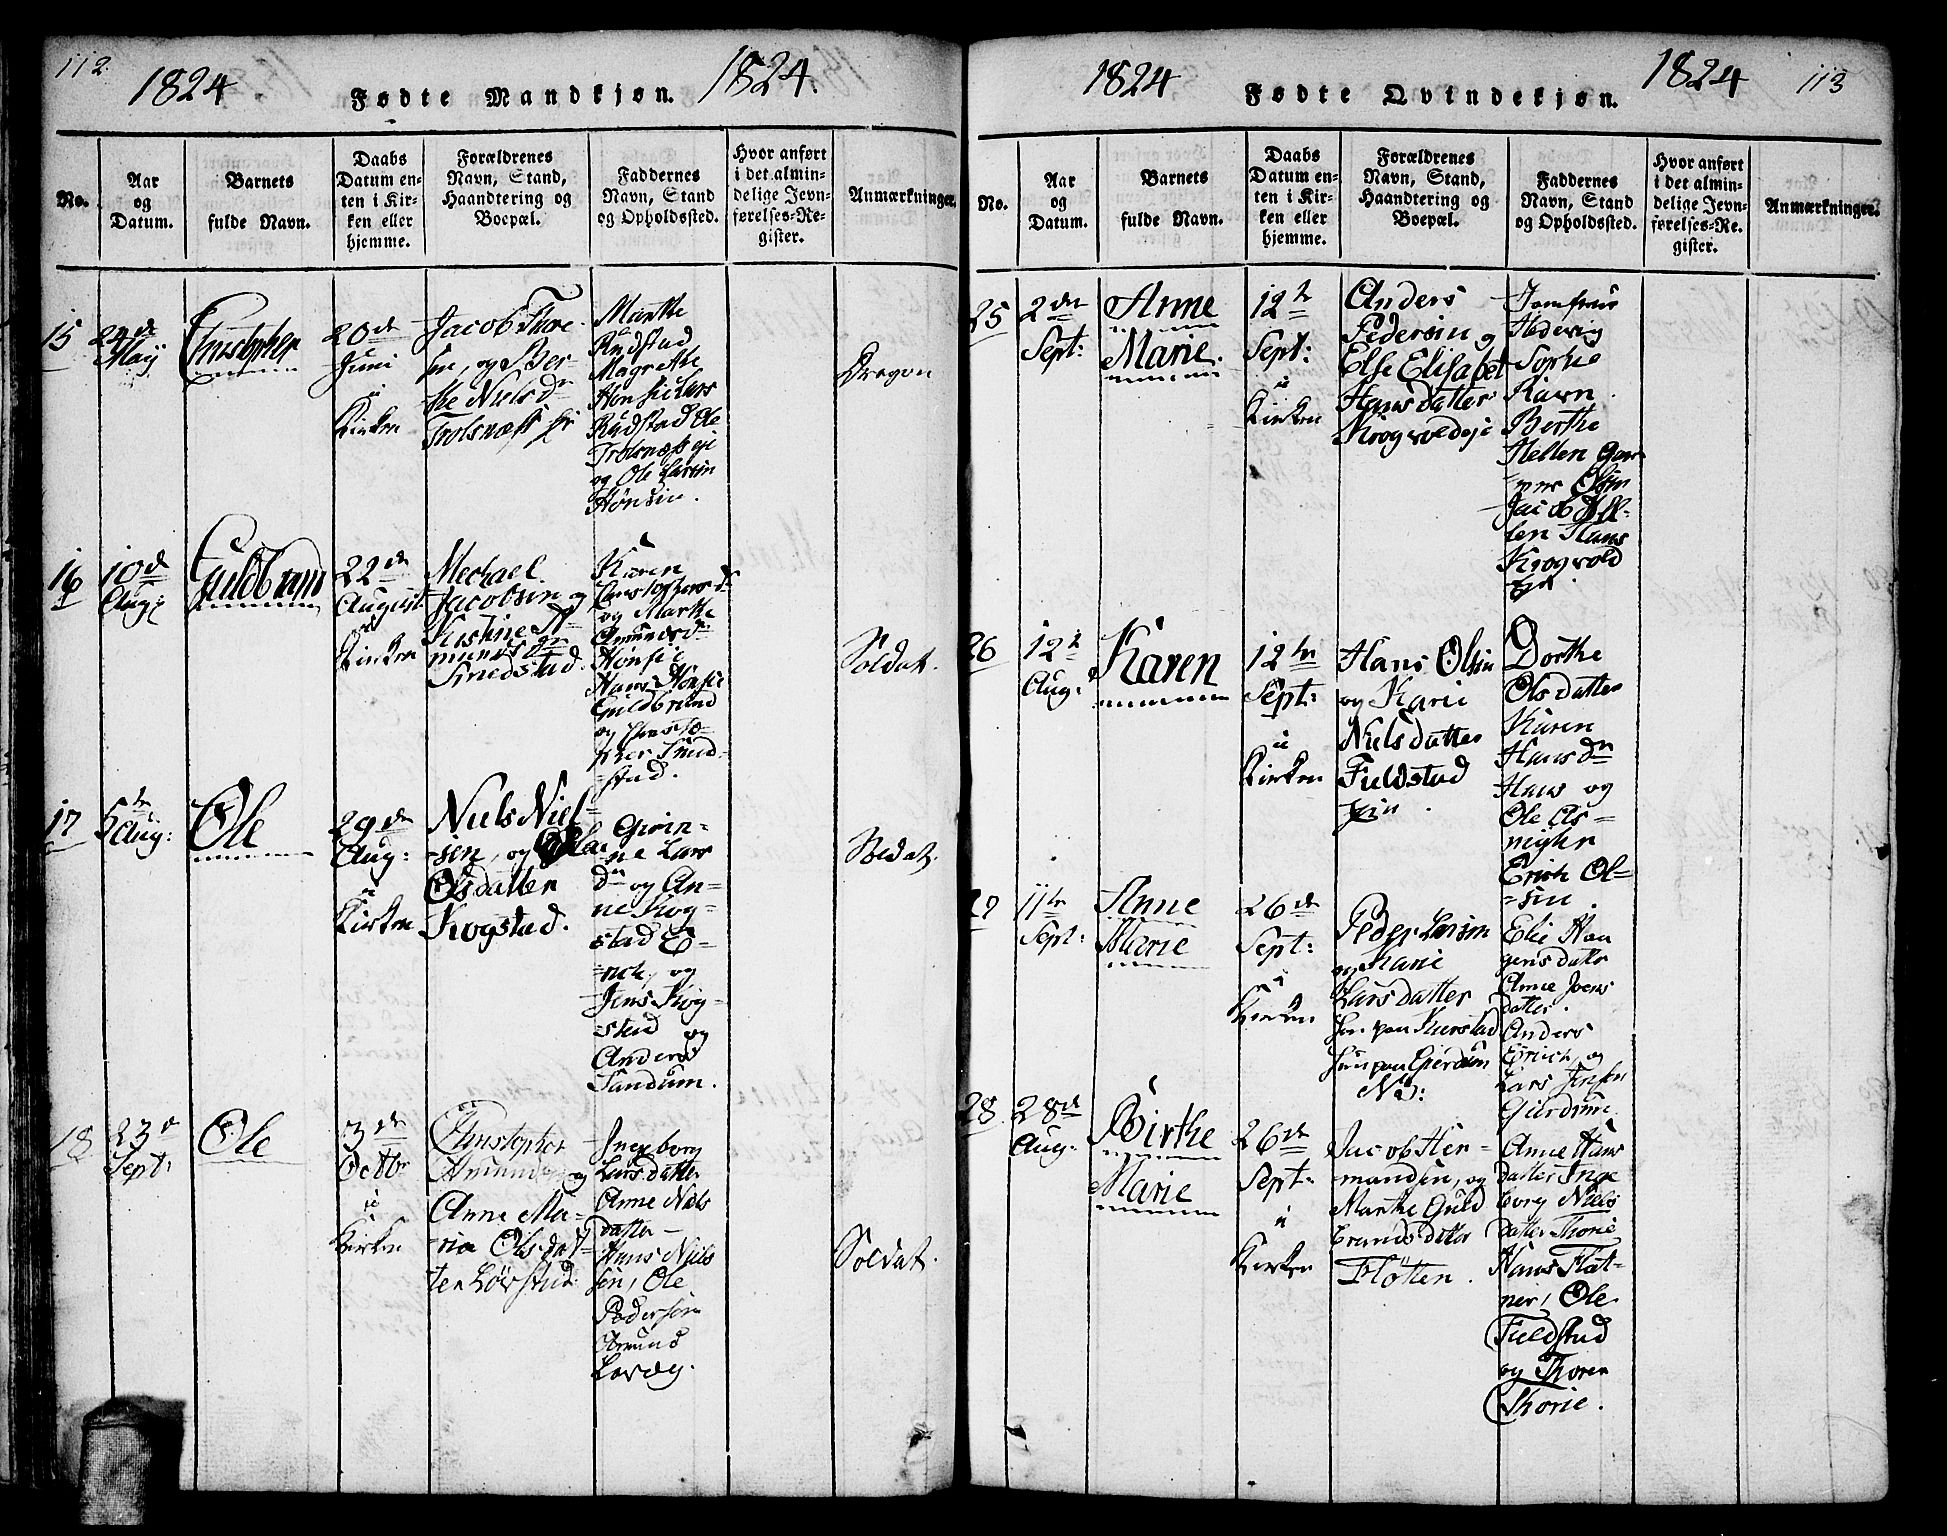 112.
1824
Fødte Mandkjøn.
1824.
No.
Aar
og
Datum.
Barnets
fulde Navn.
Daabs
Datum en-
ten i Kir-
ken eller
hjemme.
Forældrenes
Navn, Stand,
Haandtering og
Boepæl.
Faddernes
Navn, Stand
og Opholdssted.
Hvor anført
i det almin-
delige Jevn-
førelses-Re-
gister.
Anmærkninger.
15
24de
Maÿ
Christopher
20de
Juni
i
Kirken
Jacob Thore-
sen, og Ber-
the Nielsdr
Trolsnæss
Marthe
Rudstad
Magrethe
Honsie Lars
Rudstad Ole
Trolsnæss eje
og Ole Larsen
Hønsin.
Dragon
16
10de
Aug:
Guldbrand
22de
August
i
Kirken
Mechael
Jacobsen og
Kistine A-
munds dr
Smedstad.
Karen
Christophersdr
og Marthe
Amundsdr
Hønsie
Hans Hønsie
Guldbrand
og Christo-
pher Smed-
stad.
Soldat.
17
5te
Aug:
Ole
29de
Aug:
i
Kirken
Niels Niel-
sen, og
Olsdatter
Kogstad.
Gurin-
ne Lars
dr og An-
ne Kog-
stad E-
rich, og
Jens Kog-
stad og
Anders
Sandum.
Soldat.
18
23d
Sept:
Ole
3de
Octbr
i
Kirken
Christopher
Amunds og
Anne Ma-
ria Olsdat-
ter Løvstad
Ingeborg
Larsdatter
Anne Niels
datter
Hans Niels
sen, Ole
Pedersen
Amund
Løvæg.
Soldat.
1824
Fødte Qvindekjøn.
1824
113
No.
Aar
og
Datum.
Barnets
fulde Navn.
Daabs
Datum en-
ten i Kir-
ken eller
hjemme.
Forældrenes
Navn, Stand,
Haandtering og
Boepæl.
Faddernes
Navn, Stand
og Opholdssted.
Hvor anført
i det almin-
delige Jevn-
førelses-Re-
gister.
Anmærkninger.
25
2den
Sept:
Anne
Marie.
12te
Sept:
i
Kirken
Anders
Pedersen og
Else Elisabet
Hansdatter
Krogvoldeje
Jomfrue
Hedevig
Sophie
Ravn.
Berthe
Hellen Gun-
ner Olsen
Jacob Hel-
len Hans
Krogvold
Ejn.
26
12t
Aug:
Karen
12te
Sept:
i
Kirken
Hans Olsen
og Karie
Nielsdatter
Fieldstad
Ejn.
Dorthe
Olsdatter
Karen
Hansdr
Hans og
Ole As-
nighr
Erich Ol-
sen.
27
11te
Sept:
Anne
Marie
26de
Sept:
i
Kirken
Peder Larsen
og Karie
Larsdatter
han paa Kierstad
hun paa Gierdrum
No:
Elie Haa
gensdatr
Anne Joens
datter.
Anders
Erich, og
Lars Jensen
Gierdrum.
28
28de
Aug:
Birthe
Marie
26de
Sept:
i
Kirken
Jacob Her-
mandsen, og
Marthe Guld
brandsdatter
Fløtten.
Anne Hans
datter Inge
borg Niels
datter Thorie
Hans Fløt-
ner, Ole
Fieldstad
og Thoren
Thorie.